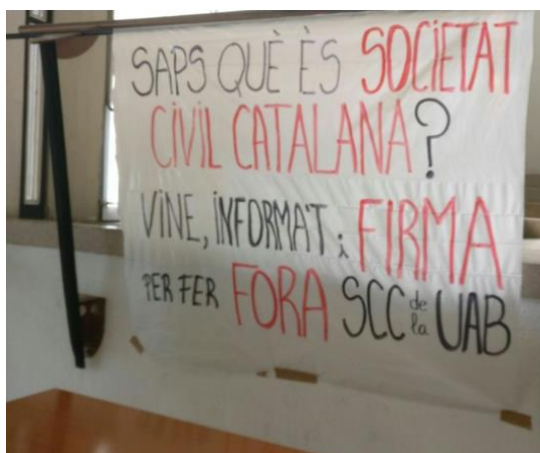 SAPS QUÈ ÈS SOCIETAT
CIVIL CATALANA?
VINE, INFORMAT i FIRMA
PER FER FORA SCC de la UAB